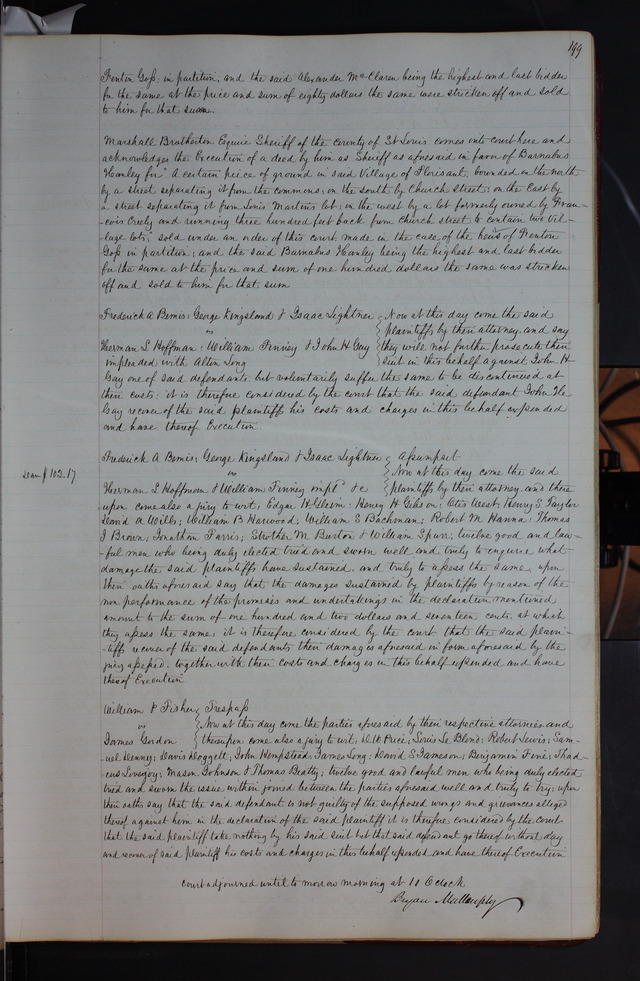 199
Fenton Goss: in partition, and the said Alexander McClaren being the highest and last bidder
for the same at the price and sum of eighty dollars the same were stricken off and sold
to him for that sum.
Marshall Brotherton Esquire Sheriff of the county of St Louis comes into court here and
acknowledges the Execution of a deed by him as Sheriff as aforesaid in favor of Barnabus
Hanley for "A certain peice of ground in said Village of Florisant, bounded on the north
by a street separating it from the commons; on the south by Church street; on the East by
a street separating it from Louis Martin's lot; on the west by a lot formerly owned by Fran-
cois Crely and running three hundred feet back from church street to contain two Vil-
lage lots; sold under an order of this court made in the case of the heirs of Fenton
Goss in partition; and the said Barnabus Hanley being the highest and last bidder
for the same at the price and sum of one hundred dollars the same was stricken
off and sold to him for that sum
Frederick A Bemis; George Kingsland & Isaac Lightner } Now at this day come the said
vs } plaintiffs by their attorney and say
Herman L Hoffman; William Finney & John H Gay } they will not further prosecute their
impleaded with Alton Long } suit in this behalf against John H
Gay one of said defendants but voluntarily suffer the same to be discontinued at
their costs: it is therefore considered by the court that the said defendant John H
Gay recover of the said plaintiffs his costs and charges in this behalf expended
and have thereof Execution
Frederick A Bemis; George Kingsland & Isaac Lightner } Assumpsit
Dam $102.17
vs } Now at this day come the said
Herman L Hoffman & William Finney impld &c } plaintiffs by their attorney and there
upon come also a jury to wit; Edgar H Glevin; Henry H Gibson; Otis West; Henry S Taylor
David A Wills; William B Harwood; William S Bachman; Robert M Hanna; Thomas
J Brown; Jonathan Farris; Strother M Burton & William Spurr; twelve good and law-
ful men who being duly elected tried and sworn well and truly to enquire what
damage the said plaintiffs have sustained, and truly to assess the same, upon
their oaths aforesaid say that the damages sustained by plaintiffs by reason of the
non performance of the promises and undertakings in the declaration mentioned
amount to the sum of one hundred and two dollars and seventeen cents. at which
they assess the same; it is therefore considered by the court that the said plain-
-tiffs recover of the said defendants their damages aforesaid in form aforesaid by the
jury assessed, together with their costs and charges in this behalf expended and have
thereof Execution
William P Fisher } Trespass
vs } Now at this day come the parties aforesaid by their respective attornies and
James Gordon } thereupon come also a jury to wit; W Price; Louis Le Blond; Robert Lewis; Sam-
uel Denny; Davis Doggett; John Hempstead; James Long; David S Jameson; Benjamin Fine; Thad-
eus Lovejoy; Mason Johnson & Thomas Beatty; twelve good and lawful men who being duly elected
tried and sworn the issue within joined between the parties aforesaid well and truly to try; upon
their oaths say that the said defendant is not guilty of the supposed wrongs and grievances alleged
thereof against him in the declaration of the said plaintiff it is therefore considered by the court
that the said plaintiff take nothing by his said suit but that said defendant go thereof without day
and recover of said plaintiff his costs and charges in this behalf expended and have thereof Execution
Court adjourned until to morrow morning at 10 OClock
Bryan Mullanphy